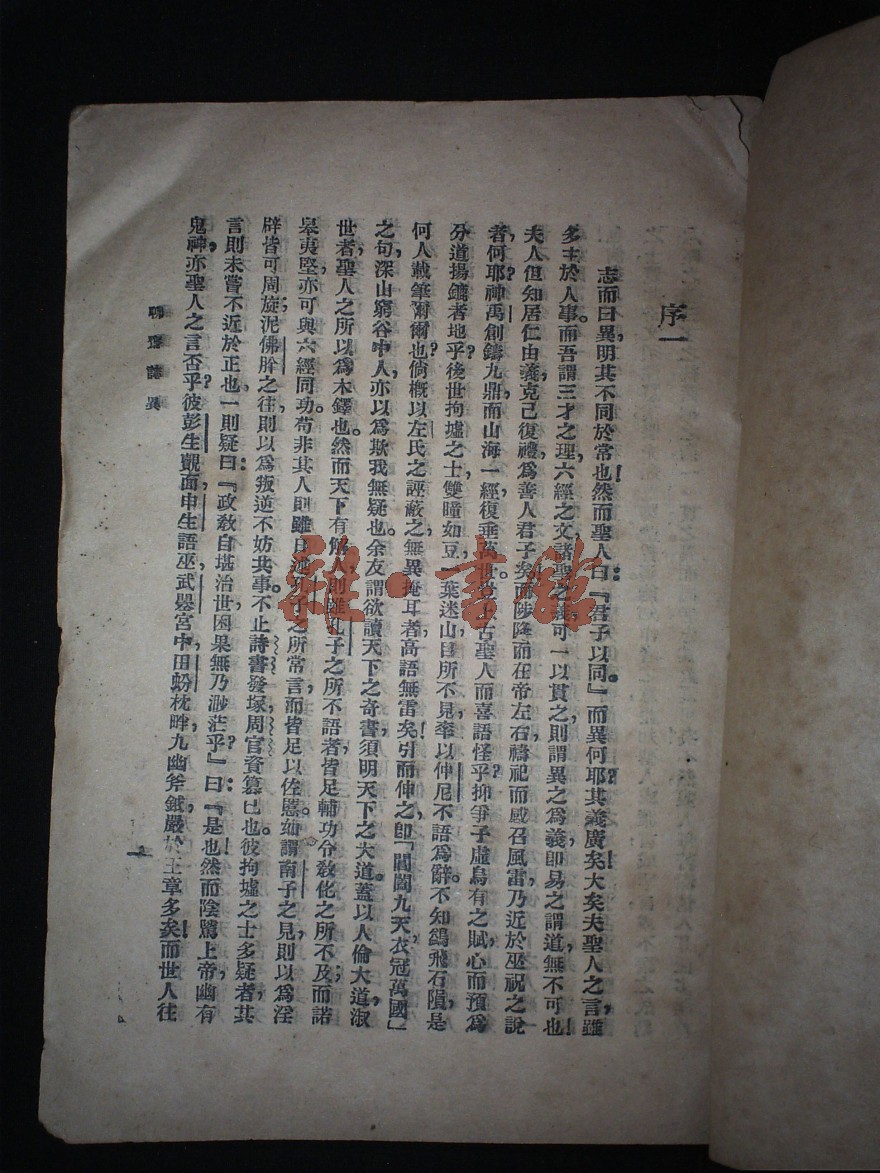 序一
志而曰異，明其不同於常也！然而聖人曰：『君子以同。』而異何耶？其義廣矣！大矣！夫聖人之言，雖
多主於人事，而吾謂三才之理，六經之文，諸聖之義，可一以貫之，則謂異之為義，卽易之謂道，無不可也！
夫人但知居仁由義，克己復禮，為善人君子矣；而陟降而在帝左右，禱祀而感召風雷，乃近於巫祝之說
者，何耶？神禹創鑄九鼎，而山海一經，復垂萬世，豈上古聖人而喜語怪乎？抑爭子虛烏有之賦心，而預為
分道揚鑣者地乎？後世拘墟之士，雙瞳如豆，一葉迷山，目所不見，率以仲尼不語為辭，不知鷁飛石隕，是
何人載筆爾爾也？倘概以左氏之誣蔽之，無異掩耳者高語無雷矣！引而伸之，卽「閶闔九天，衣冠萬國」
之句，深山窮谷中人，亦以為欺我無疑也。余友謂欲讀天下之奇書，須明天下之大道，蓋以人倫大道，淑
世者，聖人之所以為木鐸也。然而天下有解人，則雖孔子之所不語者，皆足輔功令敎化之所不及；而諾
皋夷堅，亦可與六經同功。苟非其人，則雖日述孔子之所常言，而皆足以佐慝。如讀南子之見，則以為淫
辟皆可周旋；泥佛肸之往，則以為叛逆不妨共事。不止詩書發塚，周官資篡已也。彼拘墟之士多疑者，其
言則未嘗不近於正也！一則疑曰：『政敎自堪治世，因果無乃渺茫乎？』曰：『是也，然而陰隲上帝，幽有
鬼神，亦聖人之言否乎？彼彭生覿面，申生語巫，武曌宮中，田蚡枕畔，九幽斧鉞，嚴於王章多矣！而世人往
聊齋誌異
一